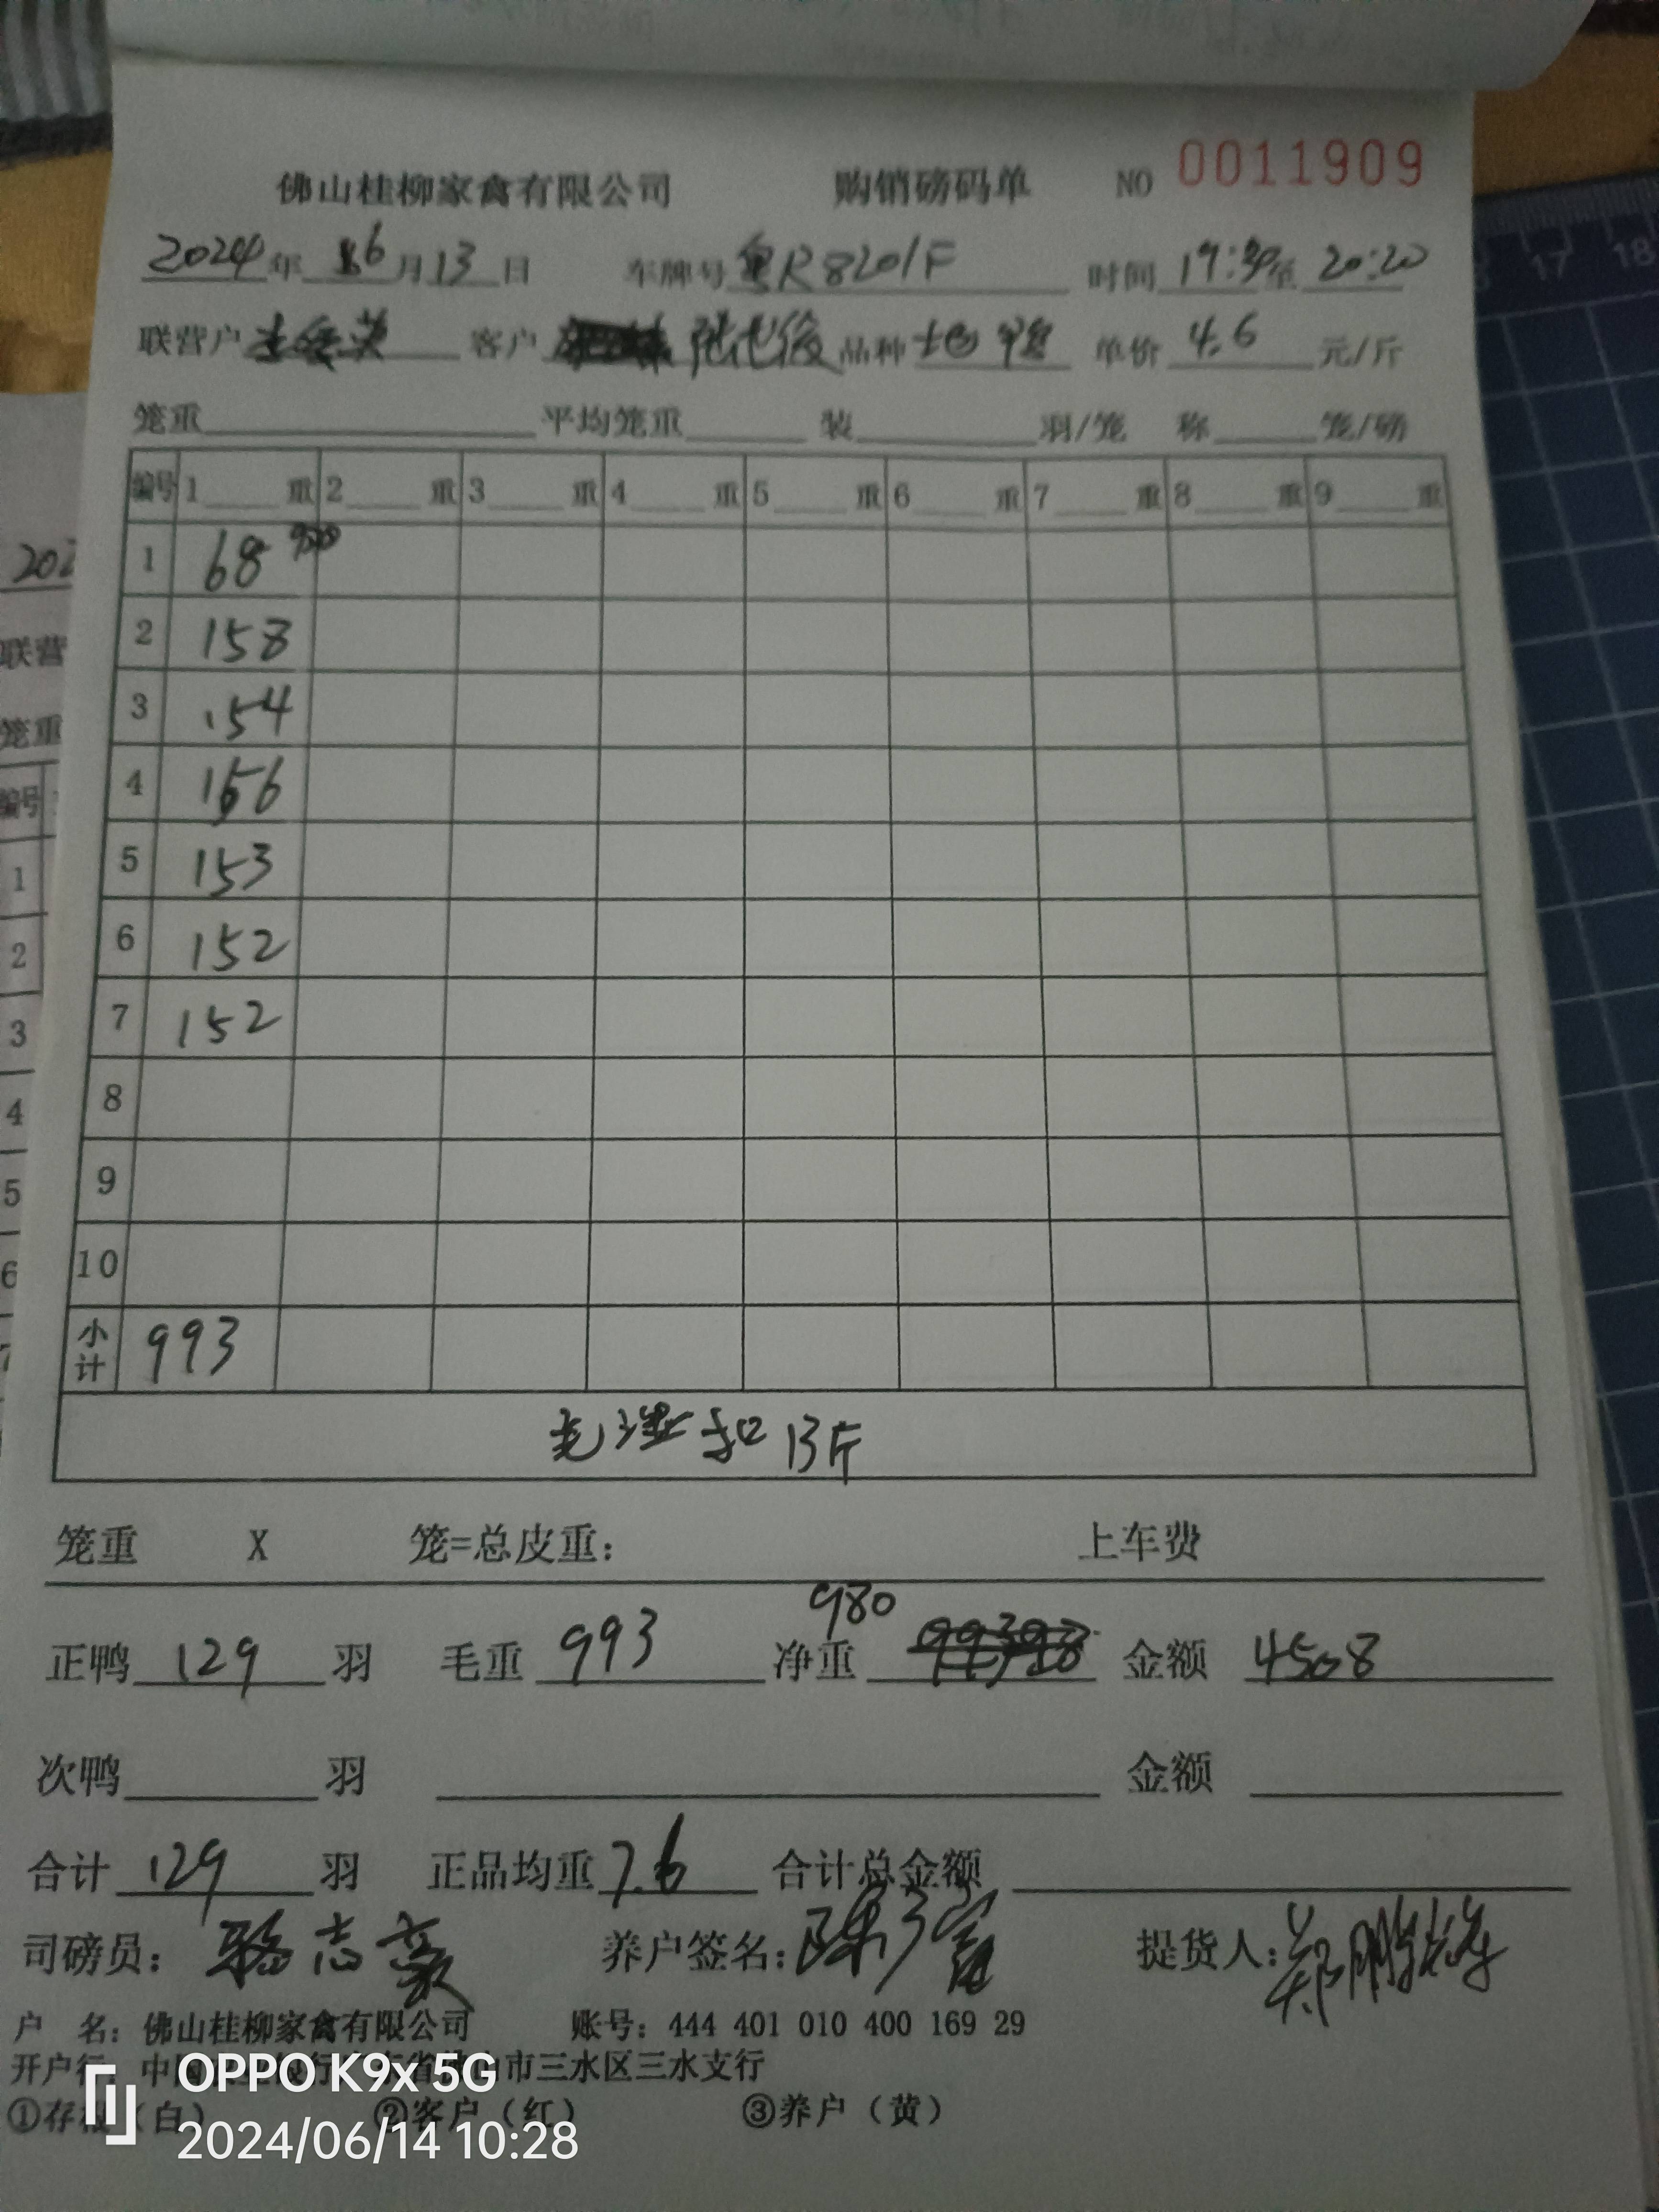 佛山桂柳家禽有限公司 购销磅码单 NO 0011909
2024年 6月13日 车牌号 粤R8201F 时间 19:30至 20:20
联营户 客户 品种 单价 4.6 元/斤
笼重 平均笼重 装 羽/笼 称 笼/磅
编号 1 重 2 重 3 重 4 重 5 重 6 重 7 重 8 重 9 重
1 68
2 158
3 154
4 156
5 153
6 152
7 152
8
9
10
小计 993
毛渣扣13斤
笼重 X 笼=总皮重: 上车费
980
正鸭 129 羽 毛重 993 净重 金额 4508
次鸭 羽 金额
合计 129 羽 正品均重 7.6 合计总金额
司磅员: 骆志豪 养户签名: 提货人:
户 名: 佛山桂柳家禽有限公司 账号: 444 401 010 400 169 29
开户行: 中国 银行 东省佛山市三水区三水支行
①存根(白) ②客户(红) ③养户(黄)
OPPO K9x 5G
2024/06/14 10:28
202
联营
笼重
编号
1
2
3
4
5
6
7
17 18